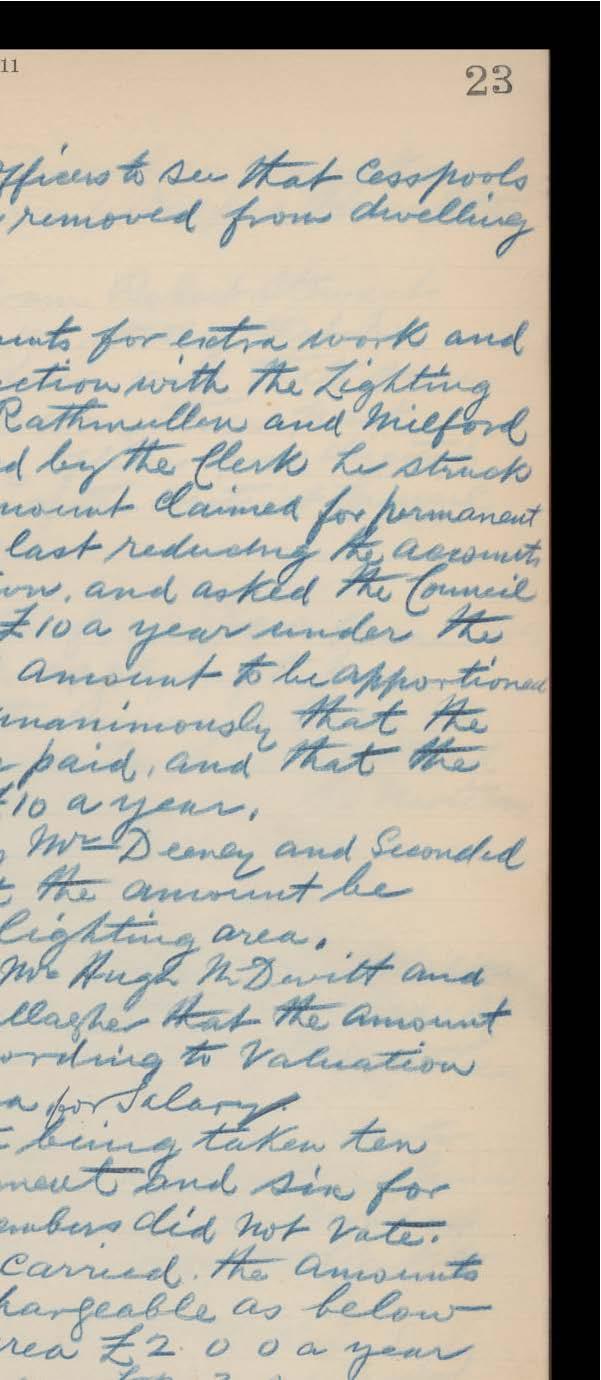 11
23
fficers to see that Cesspools
removed from dwelling
unts for extra work and
ction with the Lighting
Rathmullen and Milford
d by the Clerk he struck
mount Claimed for permanent
last reducing the accounts
ion, and asked the Council
£10 a year under the
amount to be apportioned
unanimously that the
paid, and that the
£10 a year.
Mr Deeney and Seconded
t the amount be
lighting area.
Mr Hugh McDevitt and
llagher that the Amount
ording to Valuation
a for Salary.
t being taken ten
ment and six for
embers did not Vote.
Carried. The Amounts
hargeable as below
rea £2 0 0 a year